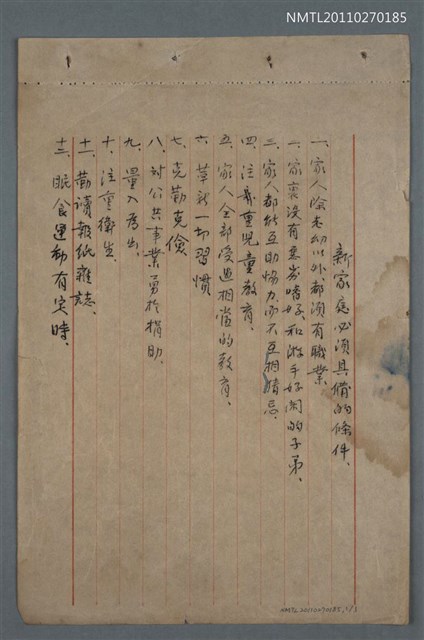 NMTL20110270185
新家庭必須具備的條件、
一、家人除老幼以外都須有職業、
二、家裏沒有惡劣嗜好和游手好閑的子弟、
三、家人都能互助協力而不互相猜忌、
四、注重兒童教育、
五、家人全部受過相當的教育、
六、革新一切習慣
七、克勤克儉
八、對公共事業勇於捐助、
九、量入為出、
十、注重衛生、
十一、勤讀報紙雜誌、
十二、眠食運動有定時、
NMTL20110270185, 1/1